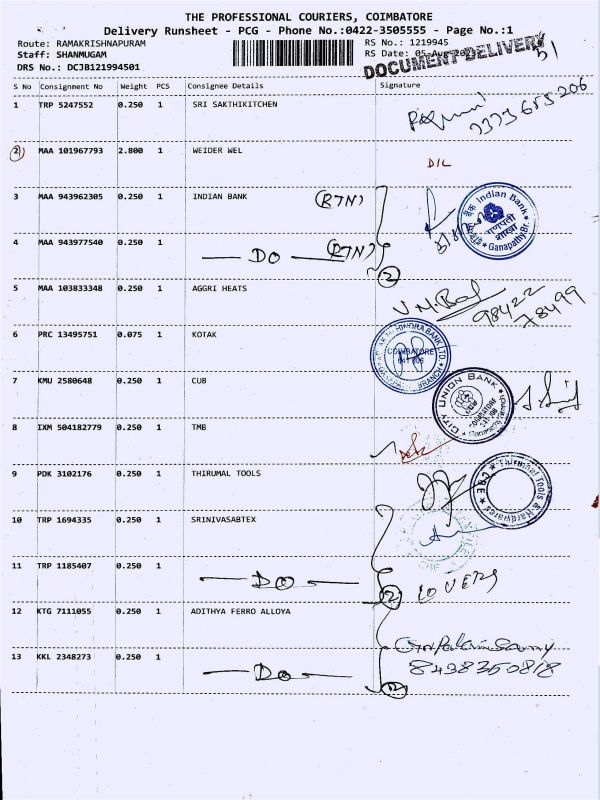 THE PROFESSIONAL COURIERS, COIMBATORE
Delivery Runsheet - PCG - Phone No.:0422-3505555 - Page No.:1
Route: RAMAKRISHNAPURAM RS No.: 1219945
Staff: SHANMUGAM RS Date: 05-Aug-202
DRS No.: DCJB121994501 DOCUMENT DELIVERY
S No Consignment No Weight PCS Consignee Details Signature
1 TRP 5247552 0.250 1 SRI SAKTHIKITCHEN
7373655206
2 MAA 101967793 2.800 1 WEIDER WEL D/L
3 MAA 943962305 0.250 1 INDIAN BANK (RTN)
Indian Bank
Ganapathy Br.
4 MAA 943977540 0.250 1 DO (RTN)
2
5 MAA 103833348 0.250 1 AGGRI HEATS
98422
78499
6 PRC 13495751 0.075 1 KOTAK
COIMBATORE
BRANCH
7 KMU 2580648 0.250 1 CUB
CITY UNION BANK
8 IXM 504182779 0.250 1 TMB
9 PDK 3102176 0.250 1 THIRUMAL TOOLS
Thirumal Tools & Hardwares
CBE
10 TRP 1694335 0.250 1 SRINIVASABTEX
11 TRP 1185407 0.250 1 DO 2 COVERS
12 KTG 7111055 0.250 1 ADITHYA FERRO ALLOYA
13 KKL 2348273 0.250 1 DO 2
8438350818